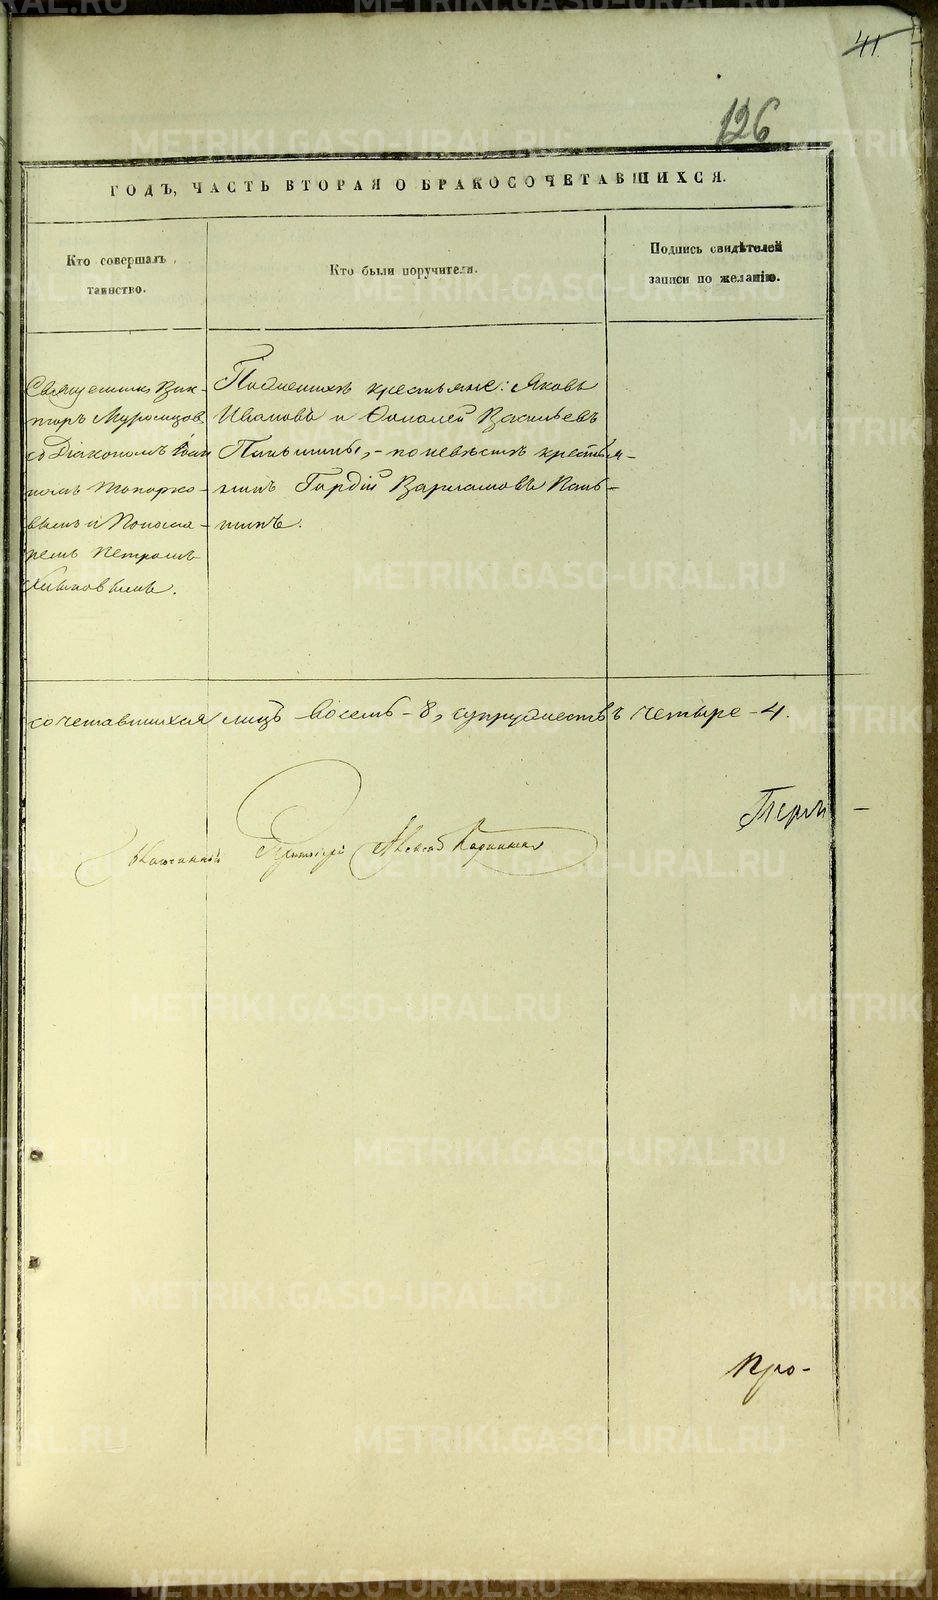 41
126
ГОДЪ, ЧАСТЬ ВТОРАЯ О БРАКОСОЧЕТАВШИХСЯ.
Кто совершалъ
таинство.
Кто были поручители.
Подпись свидѣтелей
записи по желанію.
Священникъ Вик-
торъ Муромцовъ
съ Діакономъ Іоан
номъ Топорко-
вымъ и Понома-
ремъ Петромъ
крестьяне: Яковъ
Ивановъ и Васильевъ
Паньшины, - по невѣстѣ крестья-
нинъ Гордій Варламовъ Пань-
шинъ.
сочетавшихся лицъ восемь - 8, супружествъ четыре - 4.
Перм
Про-
METRIKI.GASO-URAL.RU